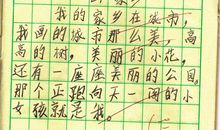 我的家乡在城市，
我画的城市那么美，高
高的树，美丽的小花，
还有一座座美丽的公园。
那个正跑向天一画的小
女孩就是我。